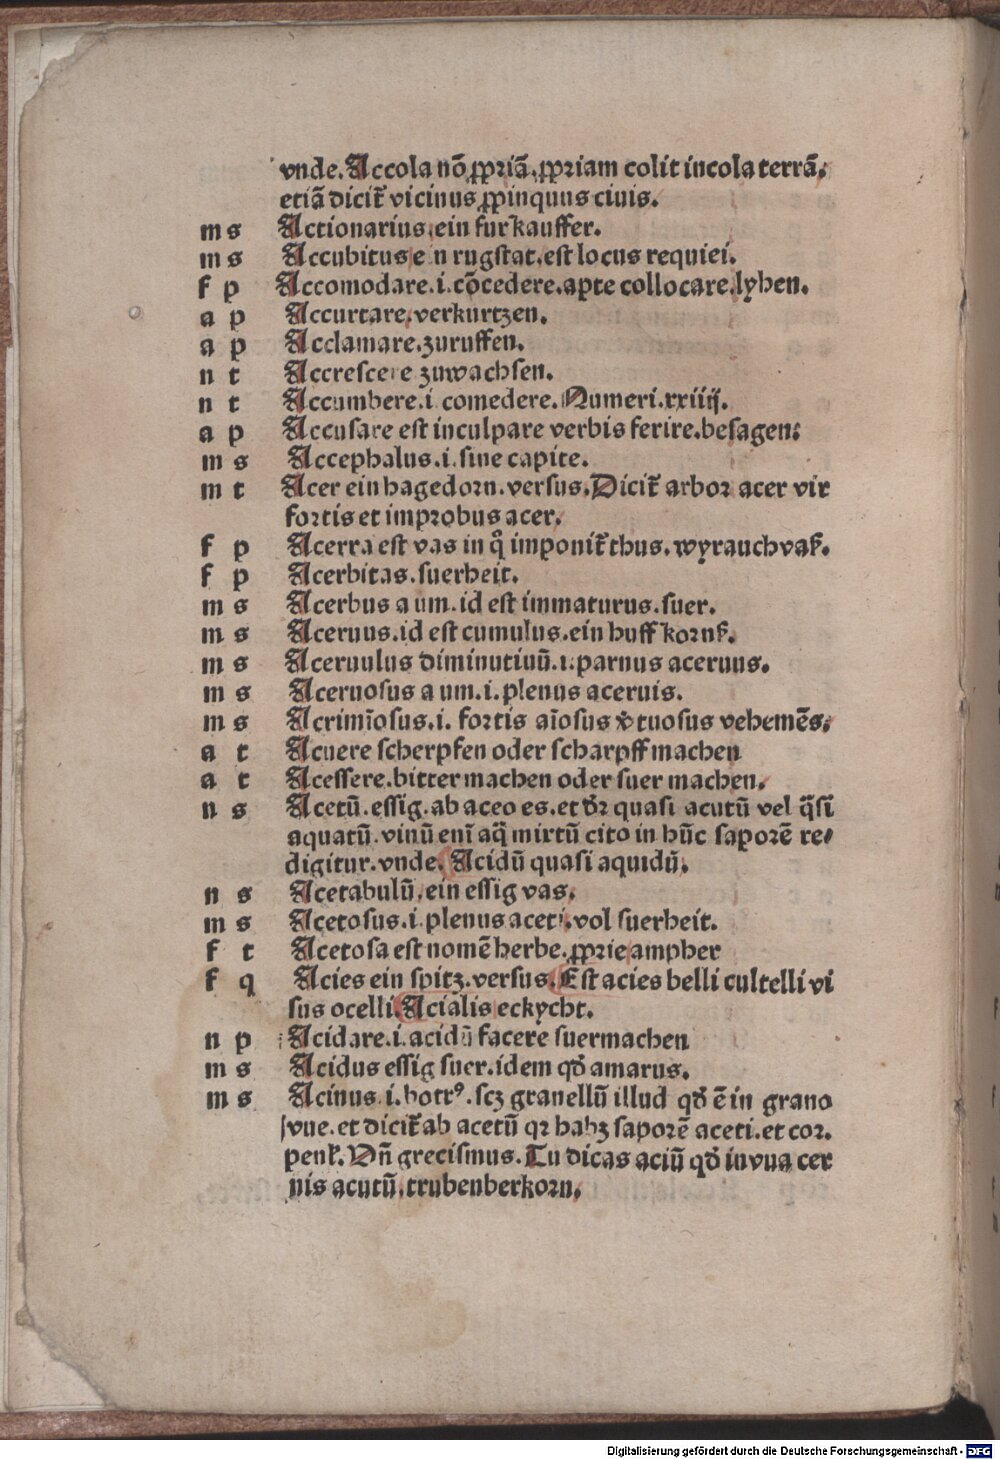 vnde. Accola nō ꝓpriā. ꝓpriam colit incola terrā.
etiā dicit̄ vicinus ꝓpinquus ciuis.
m s Actionarius. ein furkauffer.
m s Accubitus e n rugstat. est locus requiei.
f p Accomodare. i. cōcedere. apte collocare. lyhen.
a p Accurtare. verkurtzen.
a p Acclamare. zuruffen.
n t Accrescere zuwachsen.
n t Accumbere. i. comedere. Numeri. xxiiij.
a p Accusare est inculpare verbis ferire. besagen.
m s Accephalus. i. sine capite.
m t Acer ein hagedorn. versus. Dicit̄ arbor acer vir
fortis et improbus acer.
f p Acerra est vas in qͦ imponit̄ thus. wyrauchvaß.
f p Acerbitas. suerheit.
m s Acerbus a um. id est immaturus. suer.
m s Aceruus. id est cumulus. ein huff kornß.
m s Aceruulus diminutiuū. i. paruus aceruus.
m s Aceruosus a um. i. plenus aceruis.
m s Acrimīosus. i. fortis aīosus v̓tuosus vehemēs.
a t Acuere scherpfen oder scharpff machen
a t Acessere. bitter machen oder suer machen.
n s Acetū. essig. ab aceo es. et dr̄ quasi acutū vel q̄si
aquatū. vinū enī aq̄ mixtū cito in hūc saporē re⸗
digitur. vnde. Acidū quasi aquidū.
n s Acetabulū. ein essig vas.
m s Acetosus. i. plenus aceti. vol suerheit.
f t Acetosa est nomē herbe. ꝓprie ampher
f q Acies ein spitz. versus. Est acies belli cultelli vi
sus ocelli. Acialis eckycht.
n p Acidare. i. acidū facere suermachen
m s Acidus essig suer. idem qđ amarus.
m s Acinus. i. botrꝰ. scz granellū illud qđ ē in grano
vue. et dicit̄ ab acetū qr habz saporē aceti. et cor.
penl̓. Vn̄ grecismus. Tu dicas aciū qđ in vua cer
nis acutū. trubenberkorn.
Digitalisierung gefördert durch die Deutsche Forschungsgemeinschaft - DFG